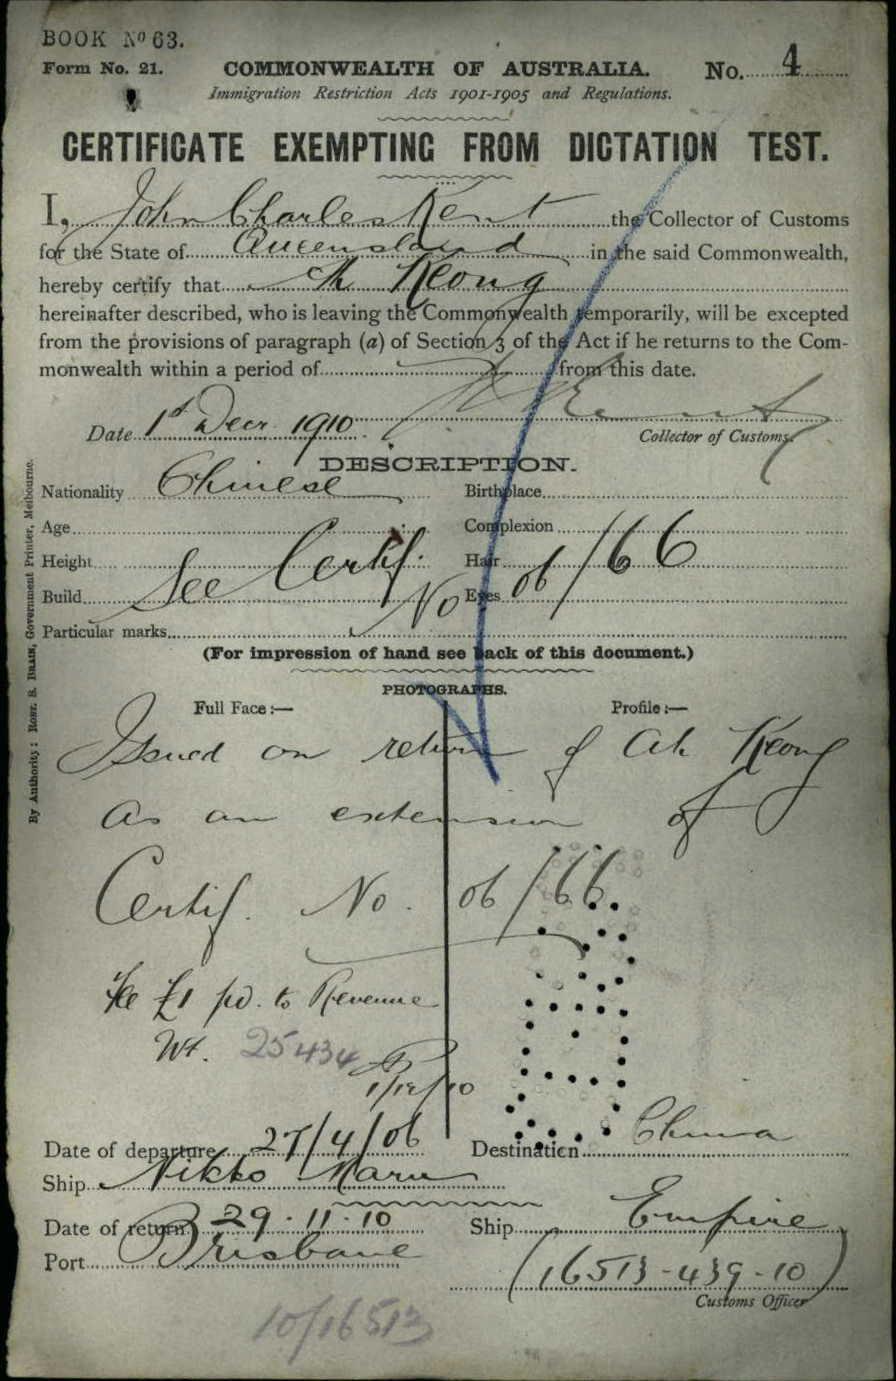 BOOK No 63.
Form No. 21. COMMONWEALTH OF AUSTRALIA. No. 4
Immigration Restriction Acts 1901-1905 and Regulations.
CERTIFICATE EXEMPTING FROM DICTATION TEST.
I, John Charles Kent the Collector of Customs
for the State of Queensland in the said Commonwealth,
hereby certify that Ah Keong
hereinafter described, who is leaving the Commonwealth temporarily, will be excepted
from the provisions of paragraph (a) of Section 3 of the Act if he returns to the Com-
monwealth within a period of from this date.
Date 1st Decr 1910 Kent
Collector of Customs.
DESCRIPTION.
Nationality Chinese Birthplace
Age Complexion
Height Hair
Build See Certif. No Eyes 06/66
Particular marks
(For impression of hand see back of this document.)
PHOTOGRAPHS.
Full Face:— Profile:—
Issued on return of Ah Keong
as an extension of
Certif. No. 06/66
Fee £1 pd. to Revenue
25434
1/12/10
Date of departure 27/4/06 Destination China
Ship Nikko Maru
Date of return 29.11.10 Ship Empire
Port Brisbane
(16513-439-10)
Customs Officer
10/16513
By Authority: ROBT. S. BRAIN, Government Printer, Melbourne.